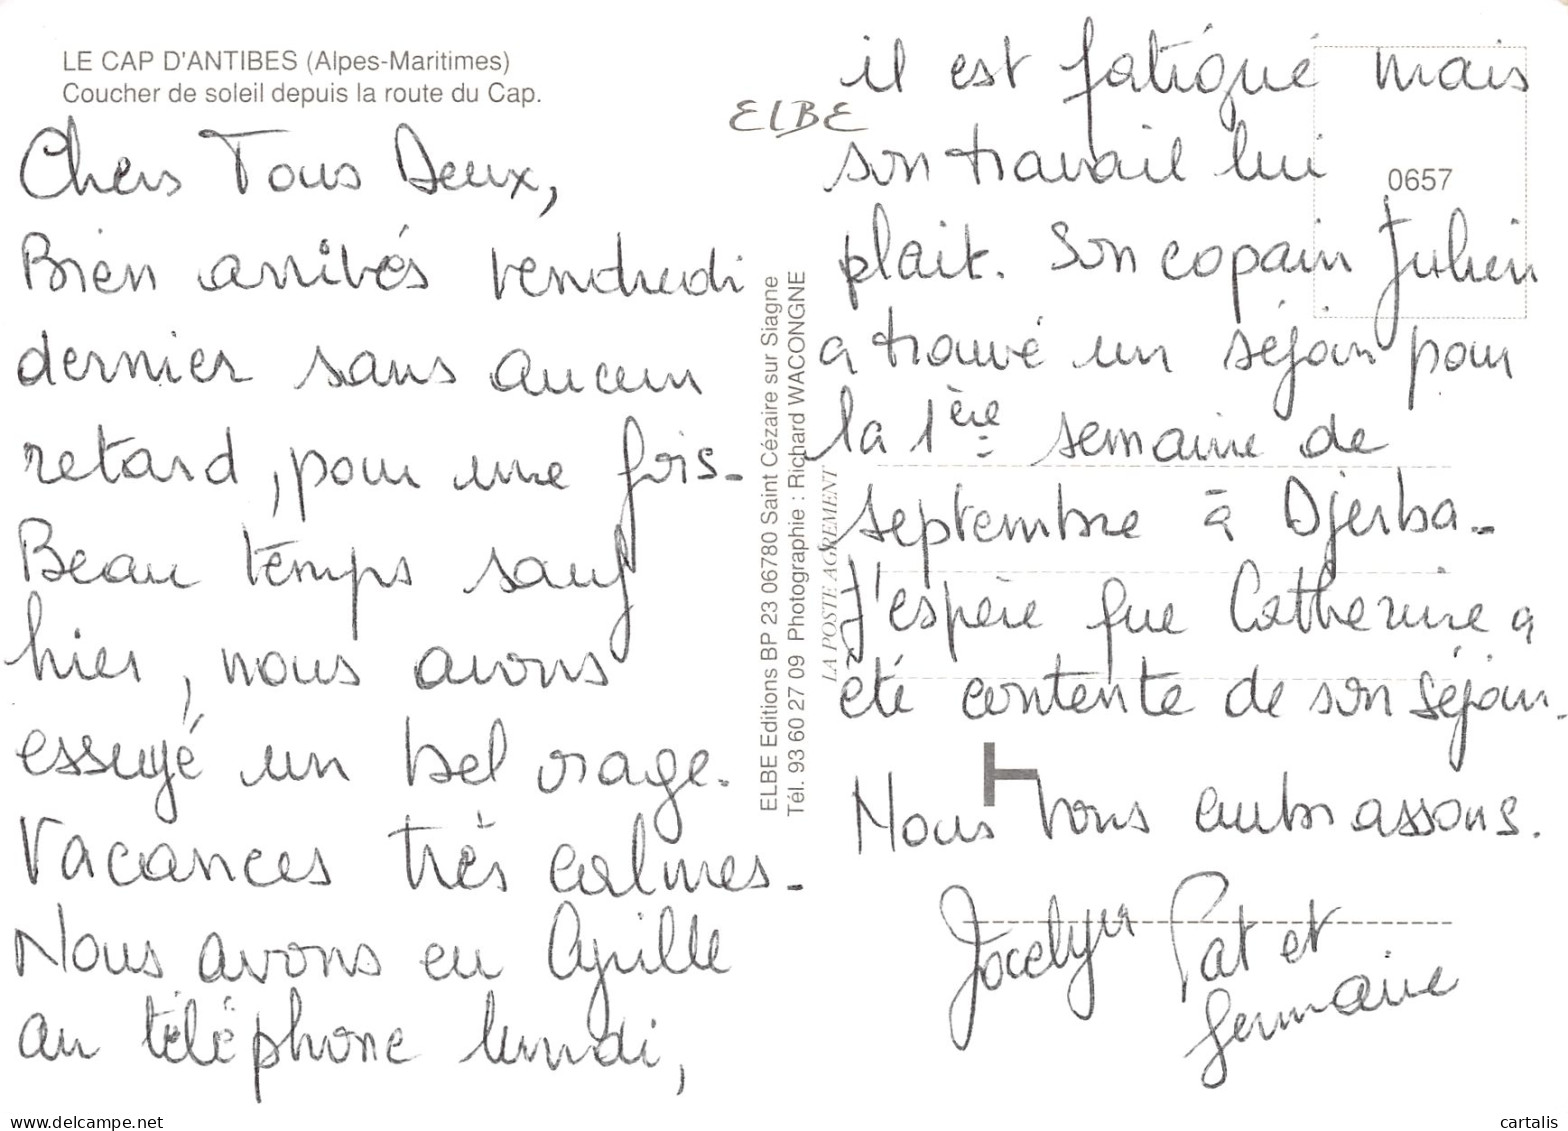 LE CAP D'ANTIBES (Alpes-Maritimes)
Coucher de soleil depuis la route du Cap.
Chers Tous Deux,
Bien arrivés vendredi
dernier sans aucun
retard, pour une fois-
Beau temps sauf
hier, nous avons
essuyé un bel orage.
Vacances très calmes-
Nous avons eu Cyrille
au téléphone lundi,
ELBE
ELBE Editions BP 23 06780 Saint Cézaire sur Siagne
Tél. 93 60 27 09 Photographie : Richard WACONGNE
LA POSTE AGREMENT
0657
il est fatigué mais
son travail lui
plait. Son copain Julien
a trouvé un séjour pour
la 1ère semaine de
septembre à Djerba-
J'espère que Catherine a
été contente de son séjour.
Nous vous embrassons.
Jocelyn Pat et
Germaine
www.delcampe.net
cartalis